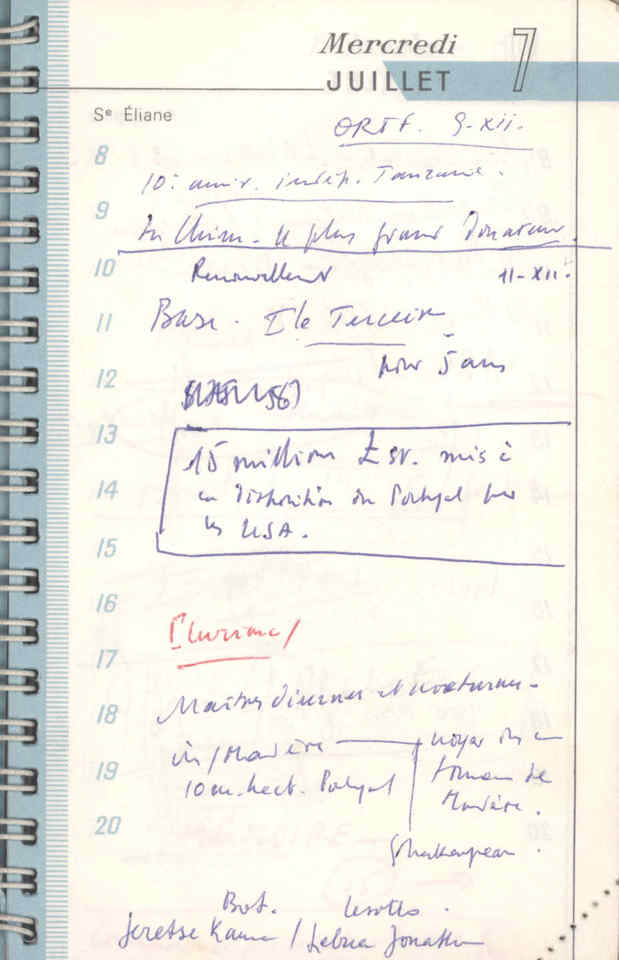 Mercredi 7
JUILLET
Sᵉ Éliane
ORTF. 9-XII.
8
10: anniv. indép. Tanzanie.
9
La Chine. le plus grand Donateur.
10
Renouvellement 11-XII.
11
Base. Ile Terceira
pour 5 ans
12
13
15 million £ st. mis à
14
la disposition du Portugal par
les USA.
15
16
17
18
Maîtres diurnes et nocturnes.
vin/Madère noyer dans un
19
10 m. hect. Portugal tonneau de
Madère.
20
Shakespeare.
Bot. Lesotho.
Seretse Kama / Lebua Jonathan